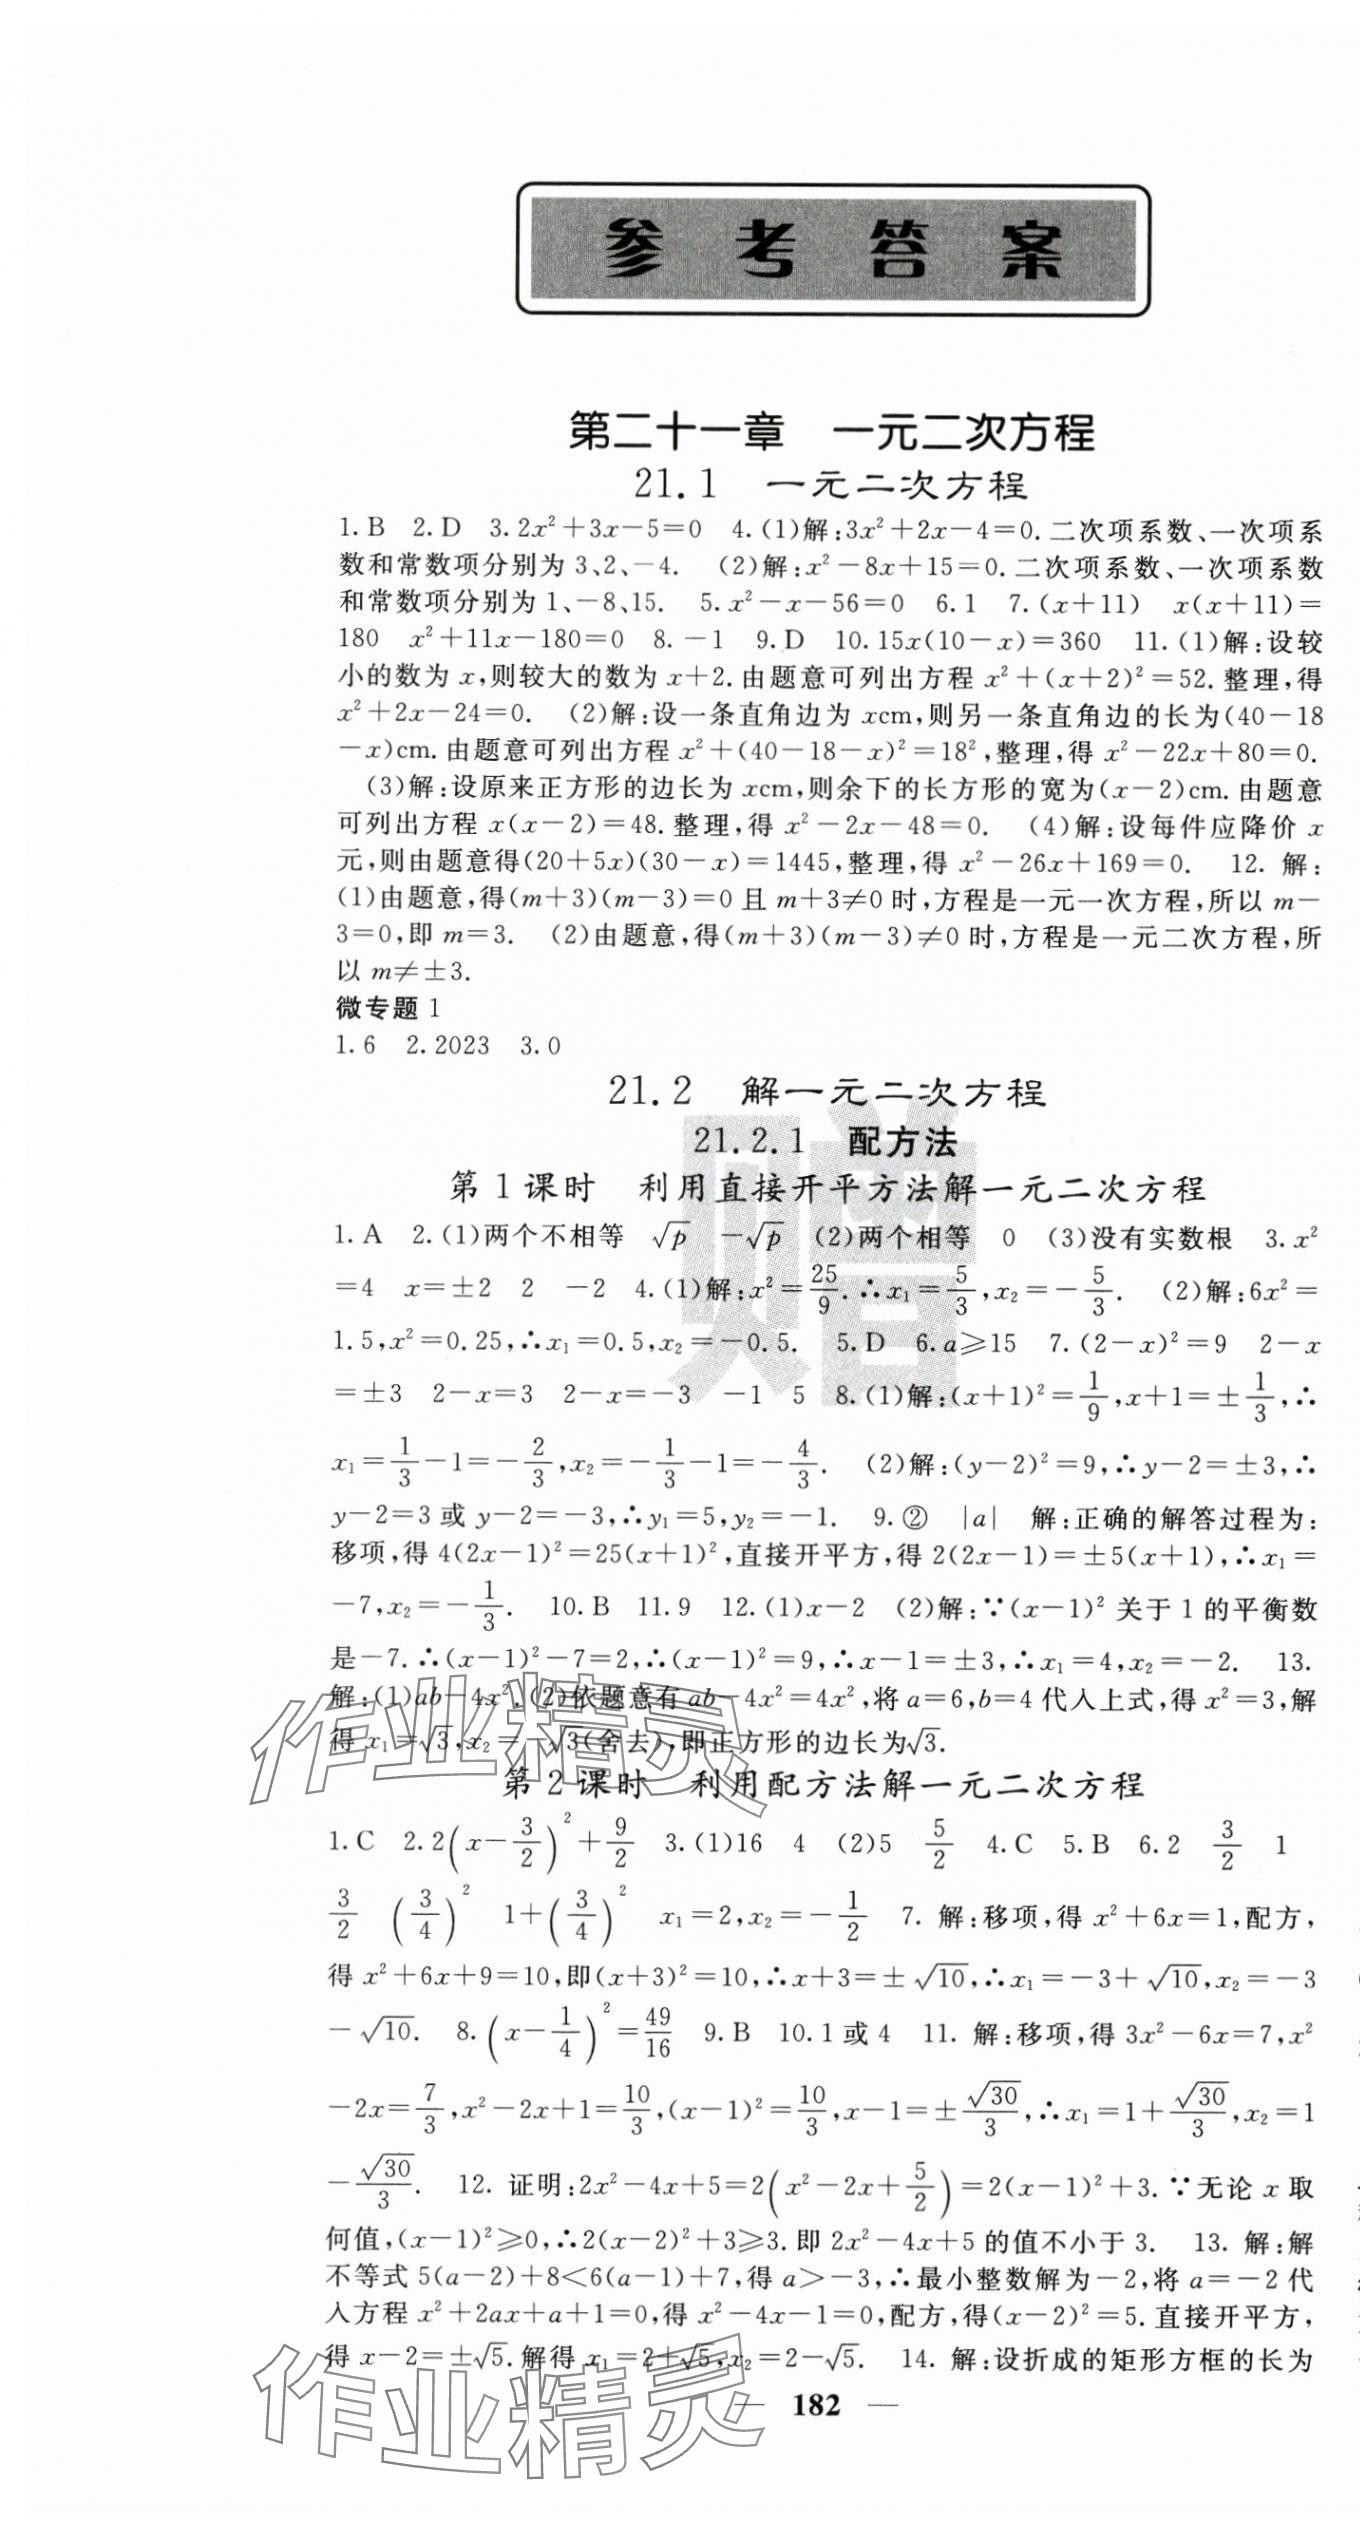 参考答案
第二十一章 一元二次方程
21.1 一元二次方程
1.B 2.D 3.2x²+3x-5=0 4.(1)解:3x²+2x-4=0.二次项系数、一次项系
数和常数项分别为3、2、-4. (2)解:x²-8x+15=0.二次项系数、一次项系数
和常数项分别为1、-8、15. 5.x²-x-56=0 6.1 7.(x+11) x(x+11)=
180 x²+11x-180=0 8.-1 9.D 10.15x(10-x)=360 11.(1)解:设较
小的数为x,则较大的数为x+2.由题意可列出方程x²+(x+2)²=52.整理,得
x²+2x-24=0. (2)解:设一条直角边为xcm,则另一条直角边的长为(40-18
-x)cm.由题意可列出方程x²+(40-18-x)²=18²,整理,得x²-22x+80=0.
(3)解:设原来正方形的边长为xcm,则余下的长方形的宽为(x-2)cm.由题意
可列出方程x(x-2)=48.整理,得x²-2x-48=0. (4)解:设每件应降价x
元,则由题意得(20+5x)(30-x)=1445,整理,得x²-26x+169=0. 12. 解:
(1)由题意,得(m+3)(m-3)=0且m+3≠0时,方程是一元一次方程,所以m-
3=0,即m=3. (2)由题意,得(m+3)(m-3)≠0时,方程是一元二次方程,所
以m≠±3.
微专题1
1.6 2.2023 3.0
21.2 解一元二次方程
21.2.1 配方法
第1课时 利用直接开平方法解一元二次方程
1.A 2.(1)两个不相等 √p -√p (2)两个相等 0 (3)没有实数根 3.x²
=4 x=±2 2 -2 4.(1)解:x²=25/9.∴x₁=5/3,x₂=-5/3. (2)解:6x²=
1.5,x²=0.25,∴x₁=0.5,x₂=-0.5. 5.D 6.a≥15 7.(2-x)²=9 2-x
=±3 2-x=3 2-x=-3 -1 5 8.(1)解:(x+1)²=1/9,x+1=±1/3,∴
x₁=1/3-1=-2/3,x₂=-1/3-1=-4/3. (2)解:(y-2)²=9,∴y-2=±3,∴
y-2=3或y-2=-3,∴y₁=5,y₂=-1. 9.② |a| 解:正确的解答过程为:
移项,得4(2x-1)²=25(x+1)²,直接开平方,得2(2x-1)=±5(x+1),∴x₁=
-7,x₂=-1/3. 10.B 11.9 12.(1)x-2 (2)解:∵(x-1)²关于1的平衡数
是-7.∴(x-1)²-7=2,∴(x-1)²=9,∴x-1=±3,∴x₁=4,x₂=-2. 13.
解:(1)ab-4x².(2)依题意有ab-4x²=4x²,将a=6,b=4代入上式,得x²=3,解
得x₁=√3,x₂=-√3(舍去),即正方形的边长为√3.
第2课时 利用配方法解一元二次方程
1.C 2.2(x-3/2)²+9/2 3.(1)16 4 (2)5 5/2 4.C 5.B 6.2 3/2 1
3/2 (3/4)² 1+(3/4)² x₁=2,x₂=-1/2 7. 解:移项,得x²+6x=1,配方,
得x²+6x+9=10,即(x+3)²=10,∴x+3=±√10,∴x₁=-3+√10,x₂=-3
-√10. 8.(x-1/4)²=49/16 9.B 10.1或4 11. 解:移项,得3x²-6x=7,x²
-2x=7/3,x²-2x+1=10/3,(x-1)²=10/3,x-1=±√30/3,∴x₁=1+√30/3,x₂=1
-√30/3. 12. 证明:2x²-4x+5=2(x²-2x+5/2)=2(x-1)²+3.∵无论x取
何值,(x-1)²≥0,∴2(x-2)²+3≥3.即2x²-4x+5的值不小于3. 13. 解:解
不等式5(a-2)+8<6(a-1)+7,得a>-3,∴最小整数解为-2,将a=-2代
入方程x²+2ax+a+1=0,得x²-4x-1=0,配方,得(x-2)²=5.直接开平方,
得x-2=±√5.解得x₁=2+√5,x₂=2-√5. 14. 解:设折成的矩形方框的长为
— 182 —
赠
作业精灵
作业精灵